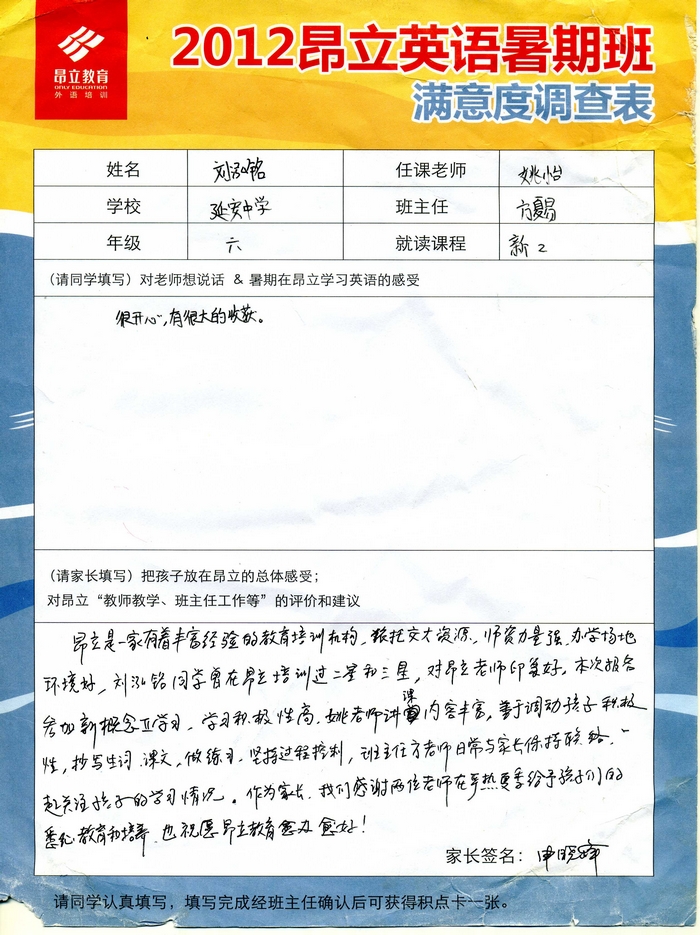 昂立教育
ONLY EDUCATION
外语培训
2012昂立英语暑期班
满意度调查表
姓名 刘泓铭 任课老师 姚怡
学校 延安中学 班主任 方夏易
年级 六 就读课程 新2
(请同学填写)对老师想说话 & 暑期在昂立学习英语的感受
很开心,有很大的收获。
(请家长填写)把孩子放在昂立的总体感受;
对昂立“教师教学、班主任工作等”的评价和建议
昂立是一家有着丰富经验的教育培训机构,依托交大资源,师资力量强,办学场地
环境好,刘泓铭同学曾在昂立培训过二星和三星,对昂立老师印象好。本次报合
参加新概念II学习,学习积极性高,姚老师讲课内容丰富,善于调动孩子积极
性,抄写生词、课文,做练习,坚持过程控制,班主任方老师日常与家长保持联络,一
起关注孩子的学习情况。作为家长,我们感谢两位老师在炎热夏季给予孩子们的
悉心教育和培养,也祝愿昂立教育愈办愈好!
家长签名:申晓峰
请同学认真填写,填写完成经班主任确认后可获得积点卡一张。